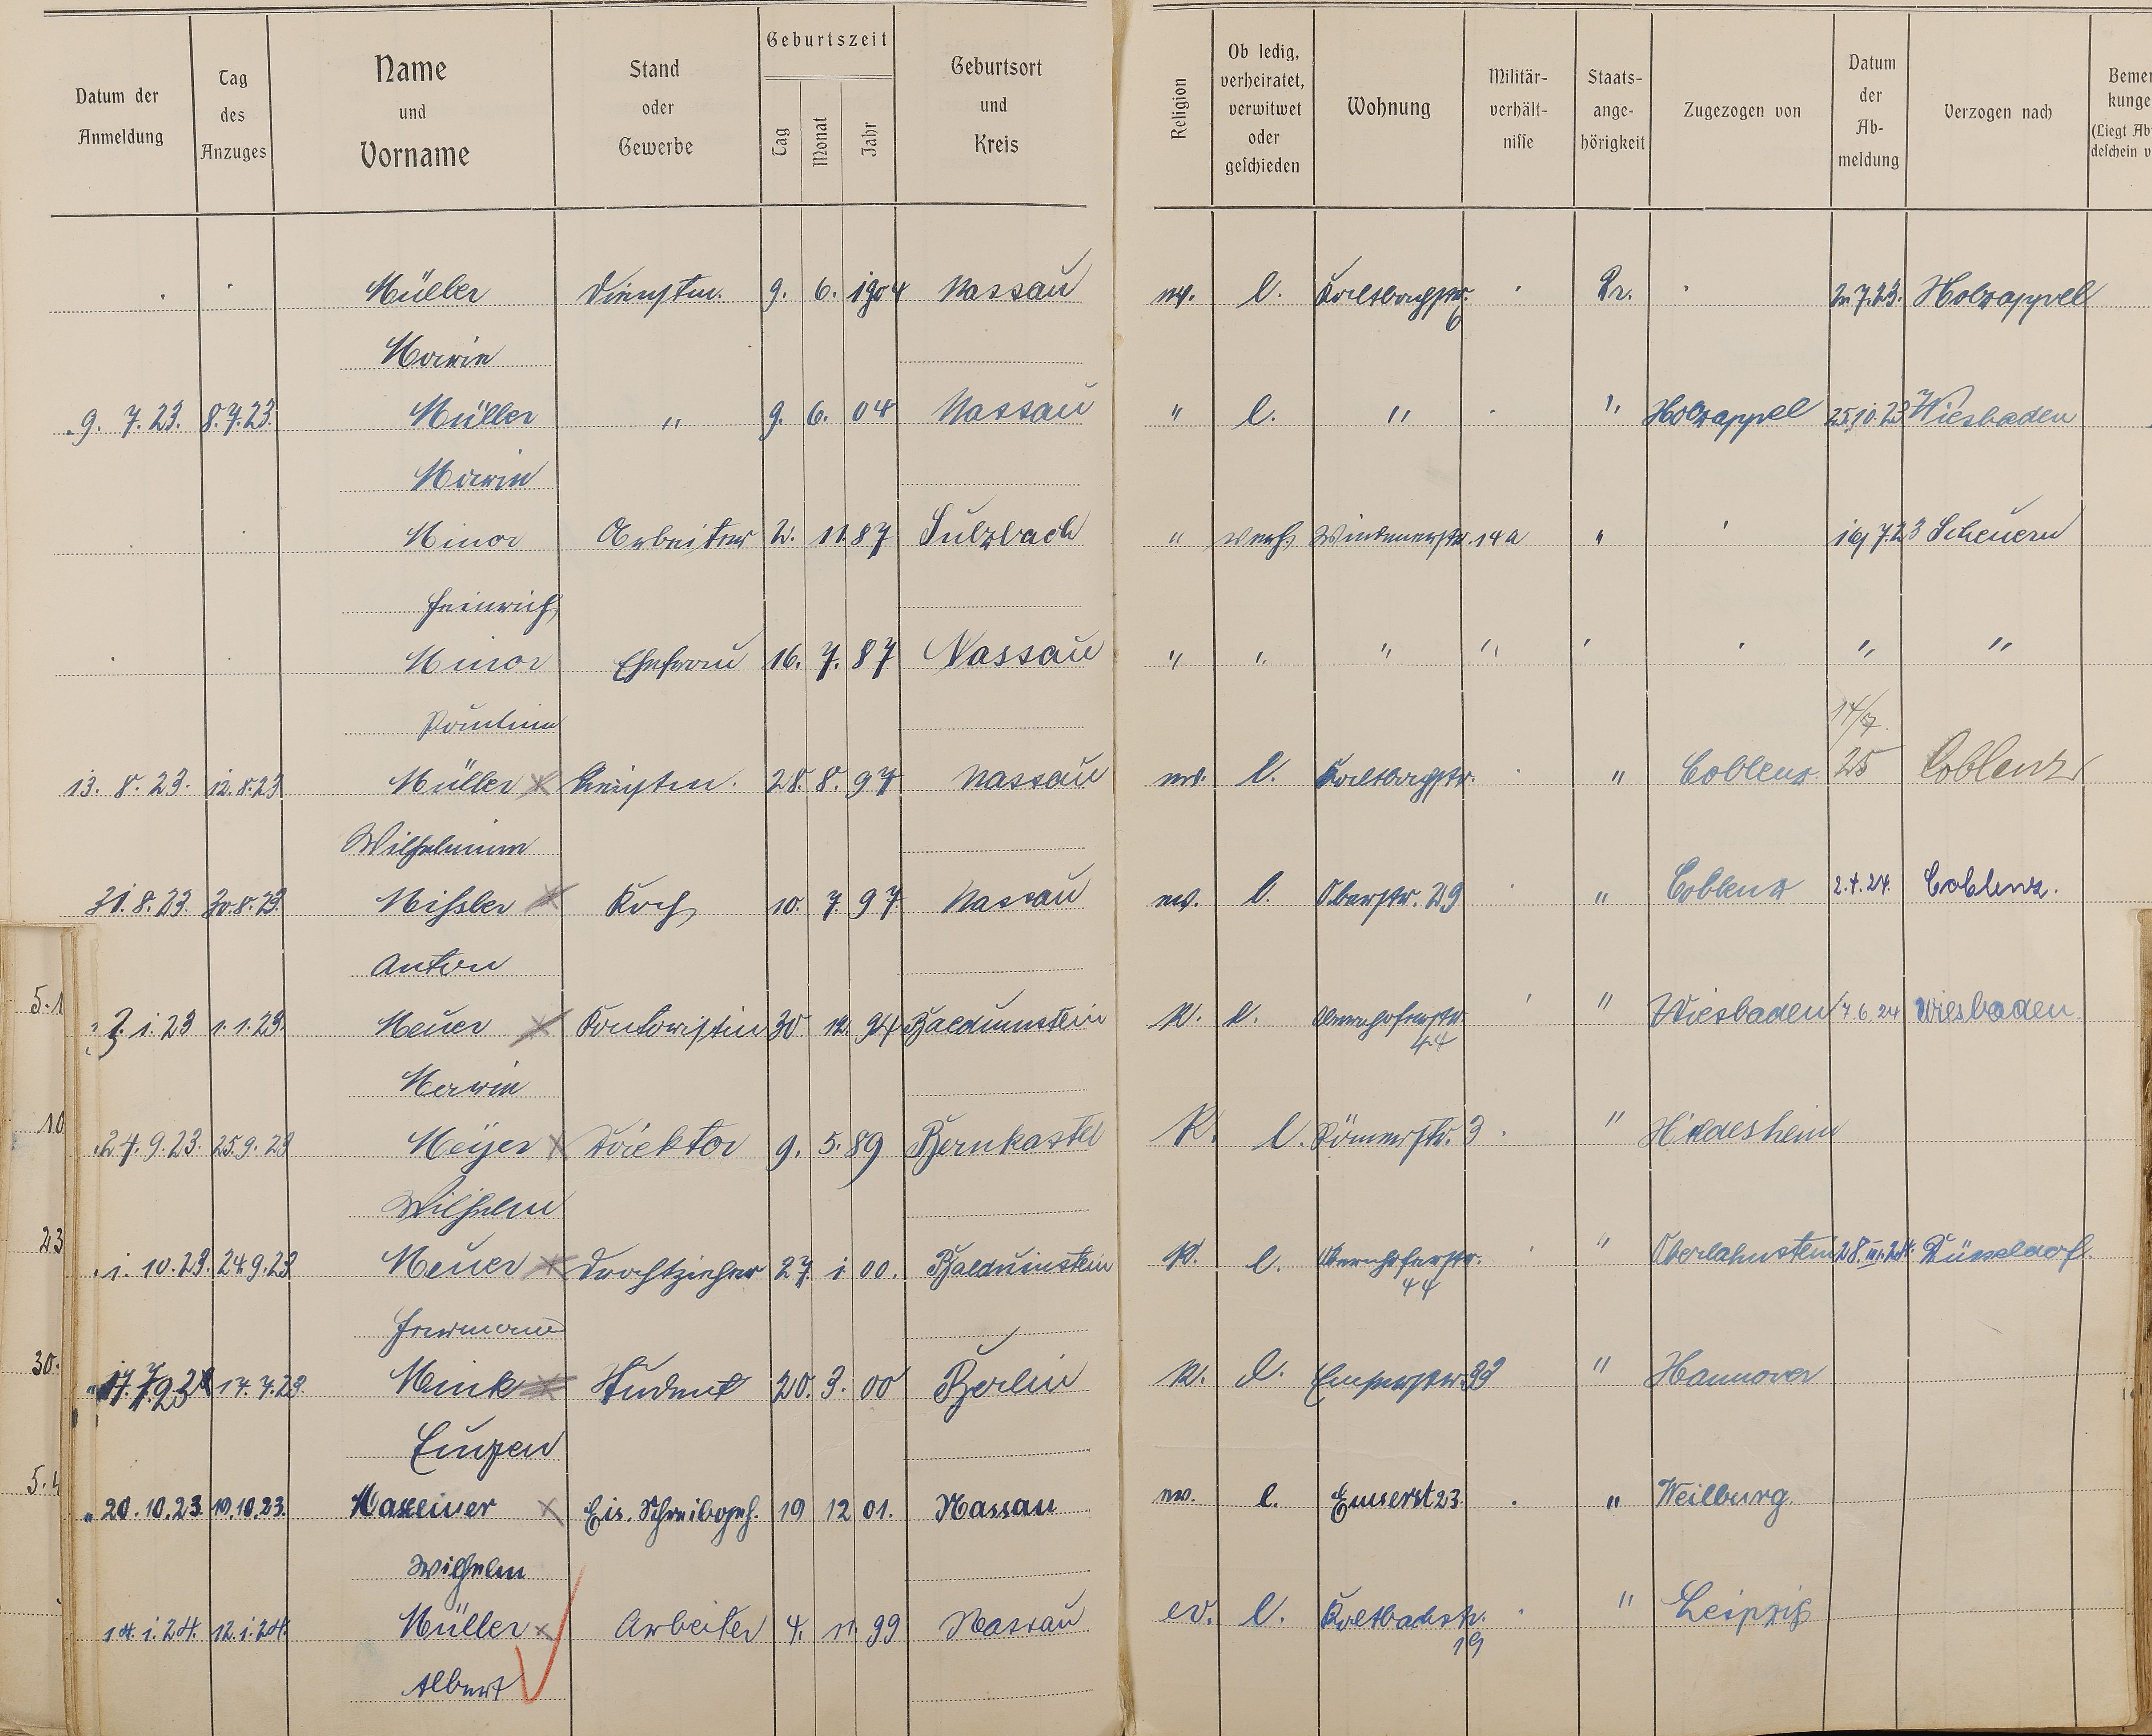 Datum der Anmeldung
Tag des Anzuges
Name und Vorname
Stand oder Gewerbe
Geburtszeit
Tag
Monat
Jahr
Geburtsort und Kreis
Religion
Ob ledig, verheiratet, verwitwet oder geschieden
Wohnung
Militär-verhält-nisse
Staats-ange-hörigkeit
Zugezogen von
Datum der Ab-meldung
Verzogen nach
Bemer
kunge
(Liegt Ab
deschein v
Müller Dienstm. 9. 6. 1904 Nassau ev. l. Kaltbachstr. 6 Pr. 7.23. Holzappel
Marie
9. 7. 23. 8.7.23. Müller " 9. 6. 04 Nassau " l. " " Holzappel 25.10.23 Wiesbaden
Marie
Minor Arbeiter 2. 11. 87 Sulzbach " verh. Windenerstr. 14a " 16/7.23 Scheuern
Heinrich
Minor Ehefrau 16. 7. 87 Nassau " " " " " " "
Pauline
13. 8. 23. 12.8.23 Müller Dienstm. 28. 8. 97 Nassau ev. l. Kaltbachstr. " Coblenz 17/7. 25 Coblenz
Wilhelmine
31. 8. 23. 30.8.23. Mißler Koch 10. 7. 97 Nassau ev. l. Oberstr. 29 " Coblenz 2.4.24. Coblenz.
Anton
5.1
3. 1. 23 1. 1. 23. Meuer Kontoristin 30 12. 94 Balduinstein K. l. Obernhoferstr. 44 " Wiesbaden 7.6.24 Wiesbaden.
Marie
10
24. 9. 23. 25.9.23 Meyer Direktor 9. 5. 89 Bernkastel K. l. Römerstr. 3 " Hildesheim
Wilhelm
23
1. 10. 23. 24.9.23 Meuer Drahtzieher 27 1 00. Balduinstein K. l. Obernhoferstr. 44 " Oberlahnstein 28.III.24. Düsseldorf.
Hermann
30.
17.7.23 Mink Student 20. 3. 00 Berlin K. l. Emserstr. 33 " Hannover
Eugen
5.4
20. 10. 23. 19.10.23. Maxeiner Eis. Schreibgeh. 19 12 01. Nassau ev. l. Emserst 23. " Weilburg.
Wilhelm
14. 1. 24. 12.1.24. Müller Arbeiter 4. 11. 99 Nassau ev. l. Kaltbachstr. 19 " Leipzig
Albert